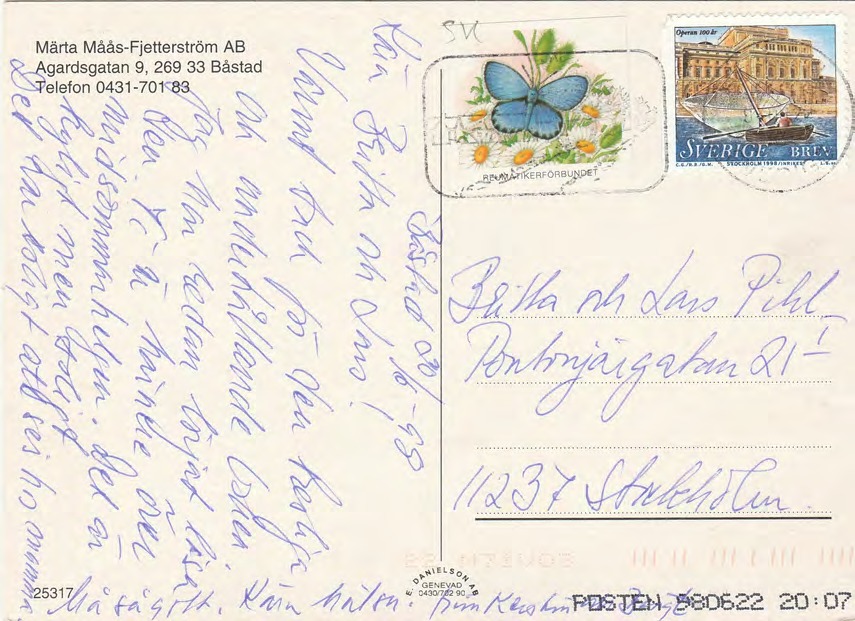 Märta Måås-Fjetterström AB
Agardsgatan 9, 269 33 Båstad
Telefon 0431-701 83
SK
REUMATIKERFÖRBUNDET
Operan 100 år
SVERIGE BREV
STOCKHOLM 1998/INRIKES
Båstad 20/6-98
Kära Britta och Lars!
Varmt tack för den
och underhållande boken
Jag har redan börjat läsa
den. Vi är här över
midsommarhelgen. Det är
kyligt men soligt
Det var roligt att ses hos mamma
Må så gott. Kära hälsn. från Kerstin
Britta och Lars Pihl
Pontonjärgatan 21 I
11237 Stockholm
25317
E. DANIELSON AB
GENEVAD
0430/702 90
POSTEN 980622 20:07